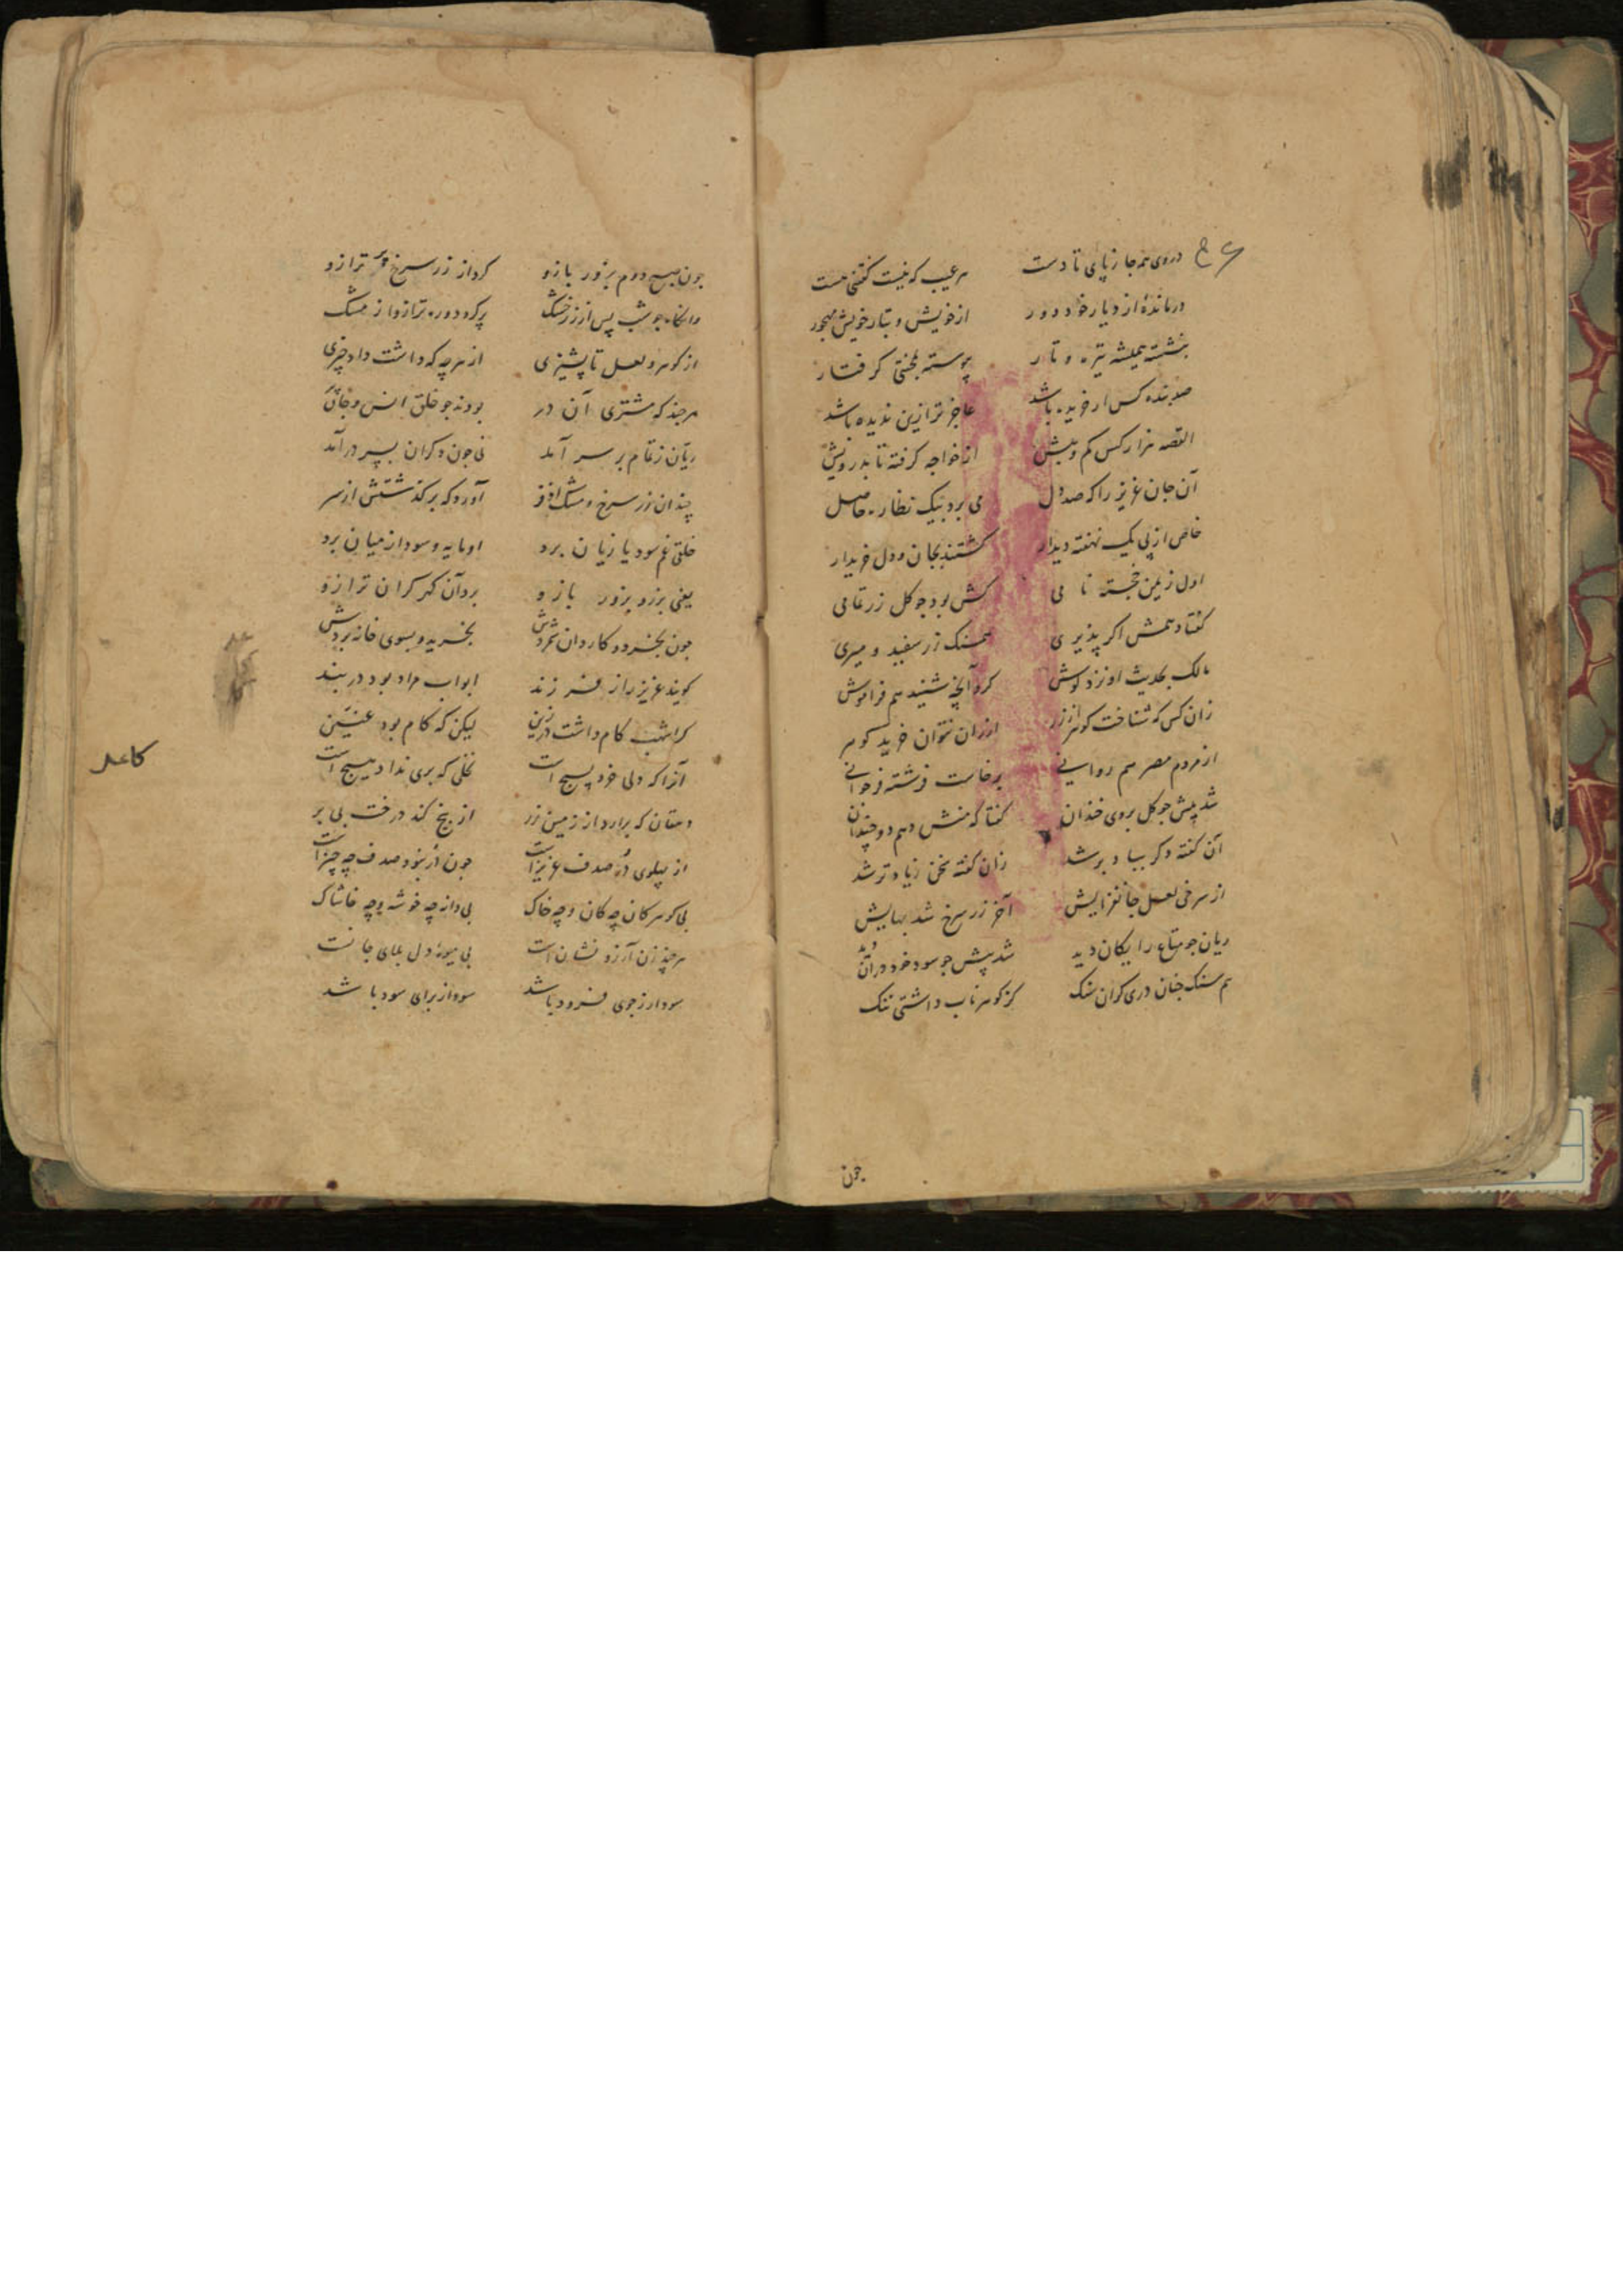 در وی همه جا ز پای تا دست هر عیب که نیست گفتنی هست
درماندهٔ از دیار خود دور از خویش و تبار خویش مهجور
بنشسته همیشه تیره و تار پیوسته گرفتار
صد بنده کس ار خریده باشد عاجز تر ازین ندیده باشد
القصه هزار کس کم و بیش از خواجه گرفته تا بدرویش
آن جان عزیز را که صد دل می برد بیک نظاره حاصل
خاص از پی یک نهفته دیدار گشتند بجان و دل خریدار
اول ز یمن خجسته نامی کش بود جو کل زر تمامی
کفتا دهمش اکر پذیری همسنک زر سفید و میری
مالک بحدیث او نزد کوش کرد آنچه شنید هم فراموش
زان کس که شناخت کوهر از زر ارزان نتوان خرید کوهر
از مردم مصر هم روانی برخاست فرشته
شد پیش جو کل بروی خندان کفتا که منش دهم دو چندان
آن کفته دکر بباد بر شد زان کفته سخن زیادتر شد
از سرخی لعل جانفزایش آخر زر سرخ شد بهایش
ریان جو متاع رایکان دید شد پیش جو سود خود در آن دید
هم سنک جنان دری کران سنک کز کوهر ناب داشتی ننک
جون
جون صبح دوم بزور بازو کرد از زر سرخ پر ترازو
وانکاه جو شب پس از زر خشک پر کرد دوره ترازو از مشک
از کوهر و لعل تا پشیزی از هر چه که داشت داد چیزی
هر جند که مشتری آن در بودند جو خلق انس و جان پر
ریان ز تمام بر سر آمد نی جون دکران بسر در آمد
چندان زر سرخ و مشک اذفر آورد که بر کذشتش از سر
خلقی غم سود یا زیان برد او مایه و سود از میان برد
یعنی بزر و بزور بازو برد آن کهر کران ترازو
جون بخرد و کاردان شمردش بخرید و بسوی خانه بردش
کویند عزیز را ز فرزند ابواب مراد بود در بند
کام داشت در زین لیکن که کام بود عنین
آنرا که دلی خرد پسیج است نخلی که بری نداد هیچ است
دهقان که برآرد از زمین زر از بیخ کند درخت بی بر
از پهلوی در صدف عزیز است جون در نبود صدف چه چیز است
بی کوهر کان چه کان و چه خاک بی دانه چه خوشه و چه خاشاک
هر چند زن آرزو نشان است بی میوهٔ دل بلای جانست
سودا ز جوی فزود باشد سودا ز برای سود باشد